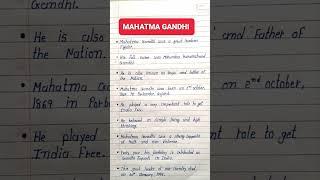 MAHATMA GANDHI
Mahatma Gandhi was a great freedom
fighter.
His full name was Mohandas Karamchand
Gandhi.
He is also known as Bapu and Father of
the Nation.
Mahatma Gandhi was born on 2nd october,
1869 in Porbandar, Gujarat.
He played a very important role to get
India Free.
He believed in simple living and high
thinking.
Mahatma Gandhi was a strong supporter
of truth and non violence.
Every year his birthday is celebrated as
Gandhi Jayanti in India.
This great leader of our country died
on 30th January, 1948.
Gandhi.
He is also
the Nation.
Mahatma
1869 in Porb
He played
India Free.
and Father of
on 2nd october,
tant role to get